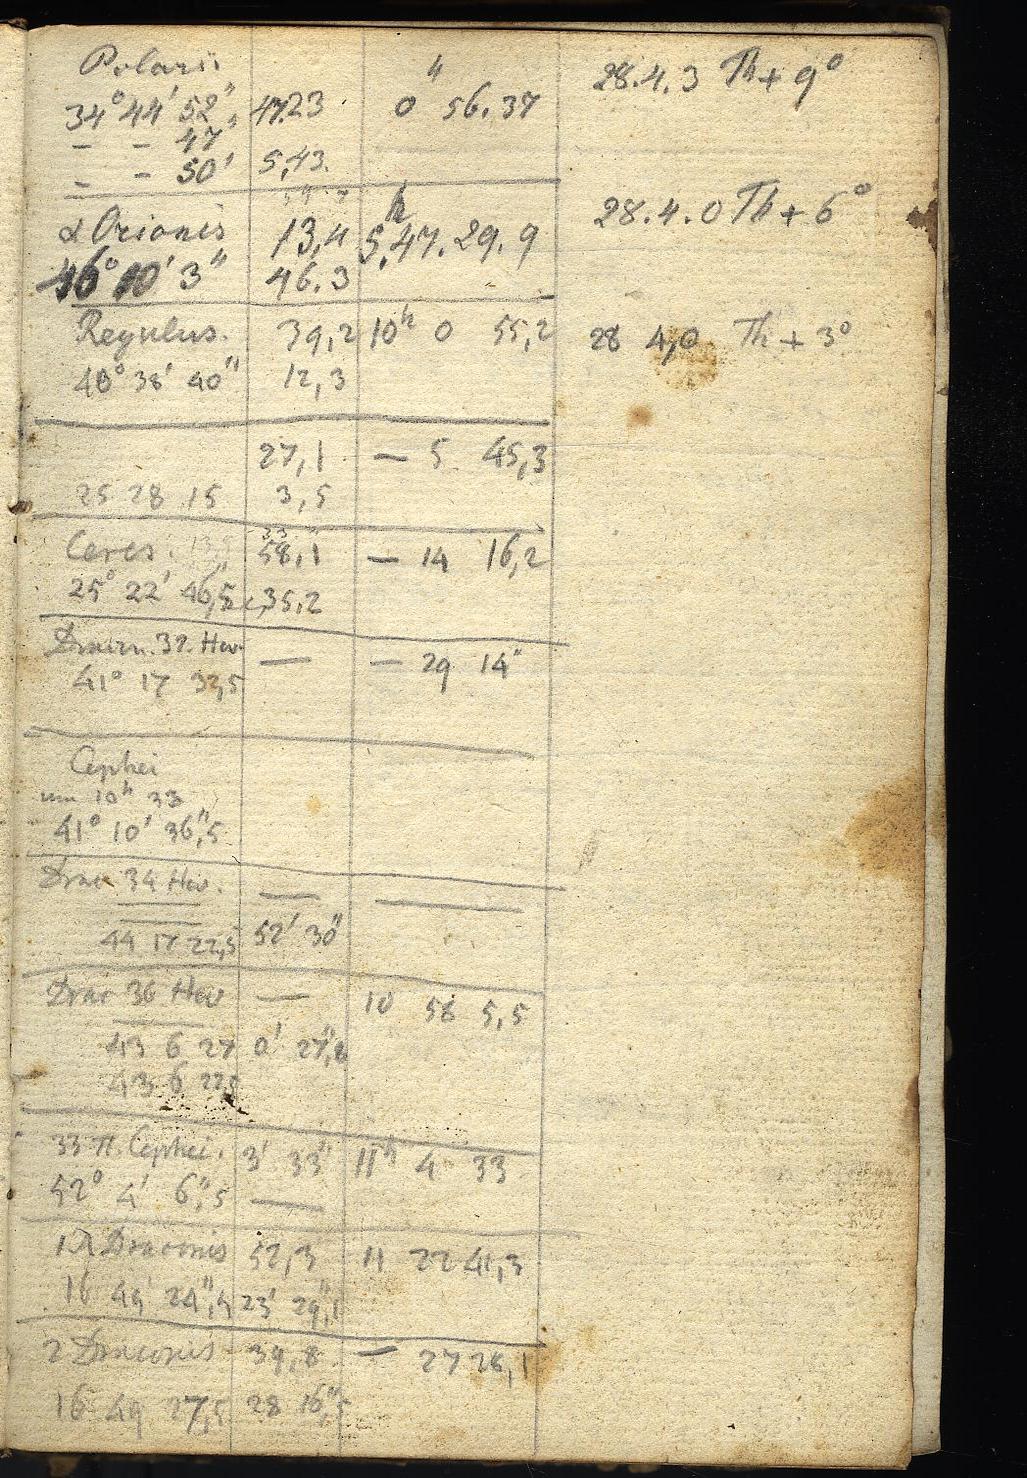 Polaris " 28.4.3 Th + 9°
34° 44' 52" 47.23 0 56.37
– – 47"
– – 50' 5,43.
α Orionis 13,4 5,h47.29.9 28.4.0 Th + 6°
46° 10' 3" 46.3
Regulus. 39,2 10h 0 55,2 28 4,0 Th + 3°
40° 38' 40" 12,3
27,1 — 5 45,3
25 28 15 3,5
Ceres. 58,1 — 14 16,2
25° 22' 46,5 35,2
Dracon. 32. Hev. — — 29 14"
41° 17 32,5
Cephei
um 10h 33
41° 10' 36",5
Drac 34 Hev. — —
44 17 22,5 52' 30"
Drac 36 Hev — 10 58 5,5
43 6 27 0' 27",8
43 6 22,5
33 π. Cephei. 3' 33" 11h 4 33
52° 4' 6",5 —
1 λ Draconis 52,3 11 22 41,3
16 49' 24",5 23' 29",1
2 Draconis 39,8 — 27 28,1
16 49 27,5 28 16",5